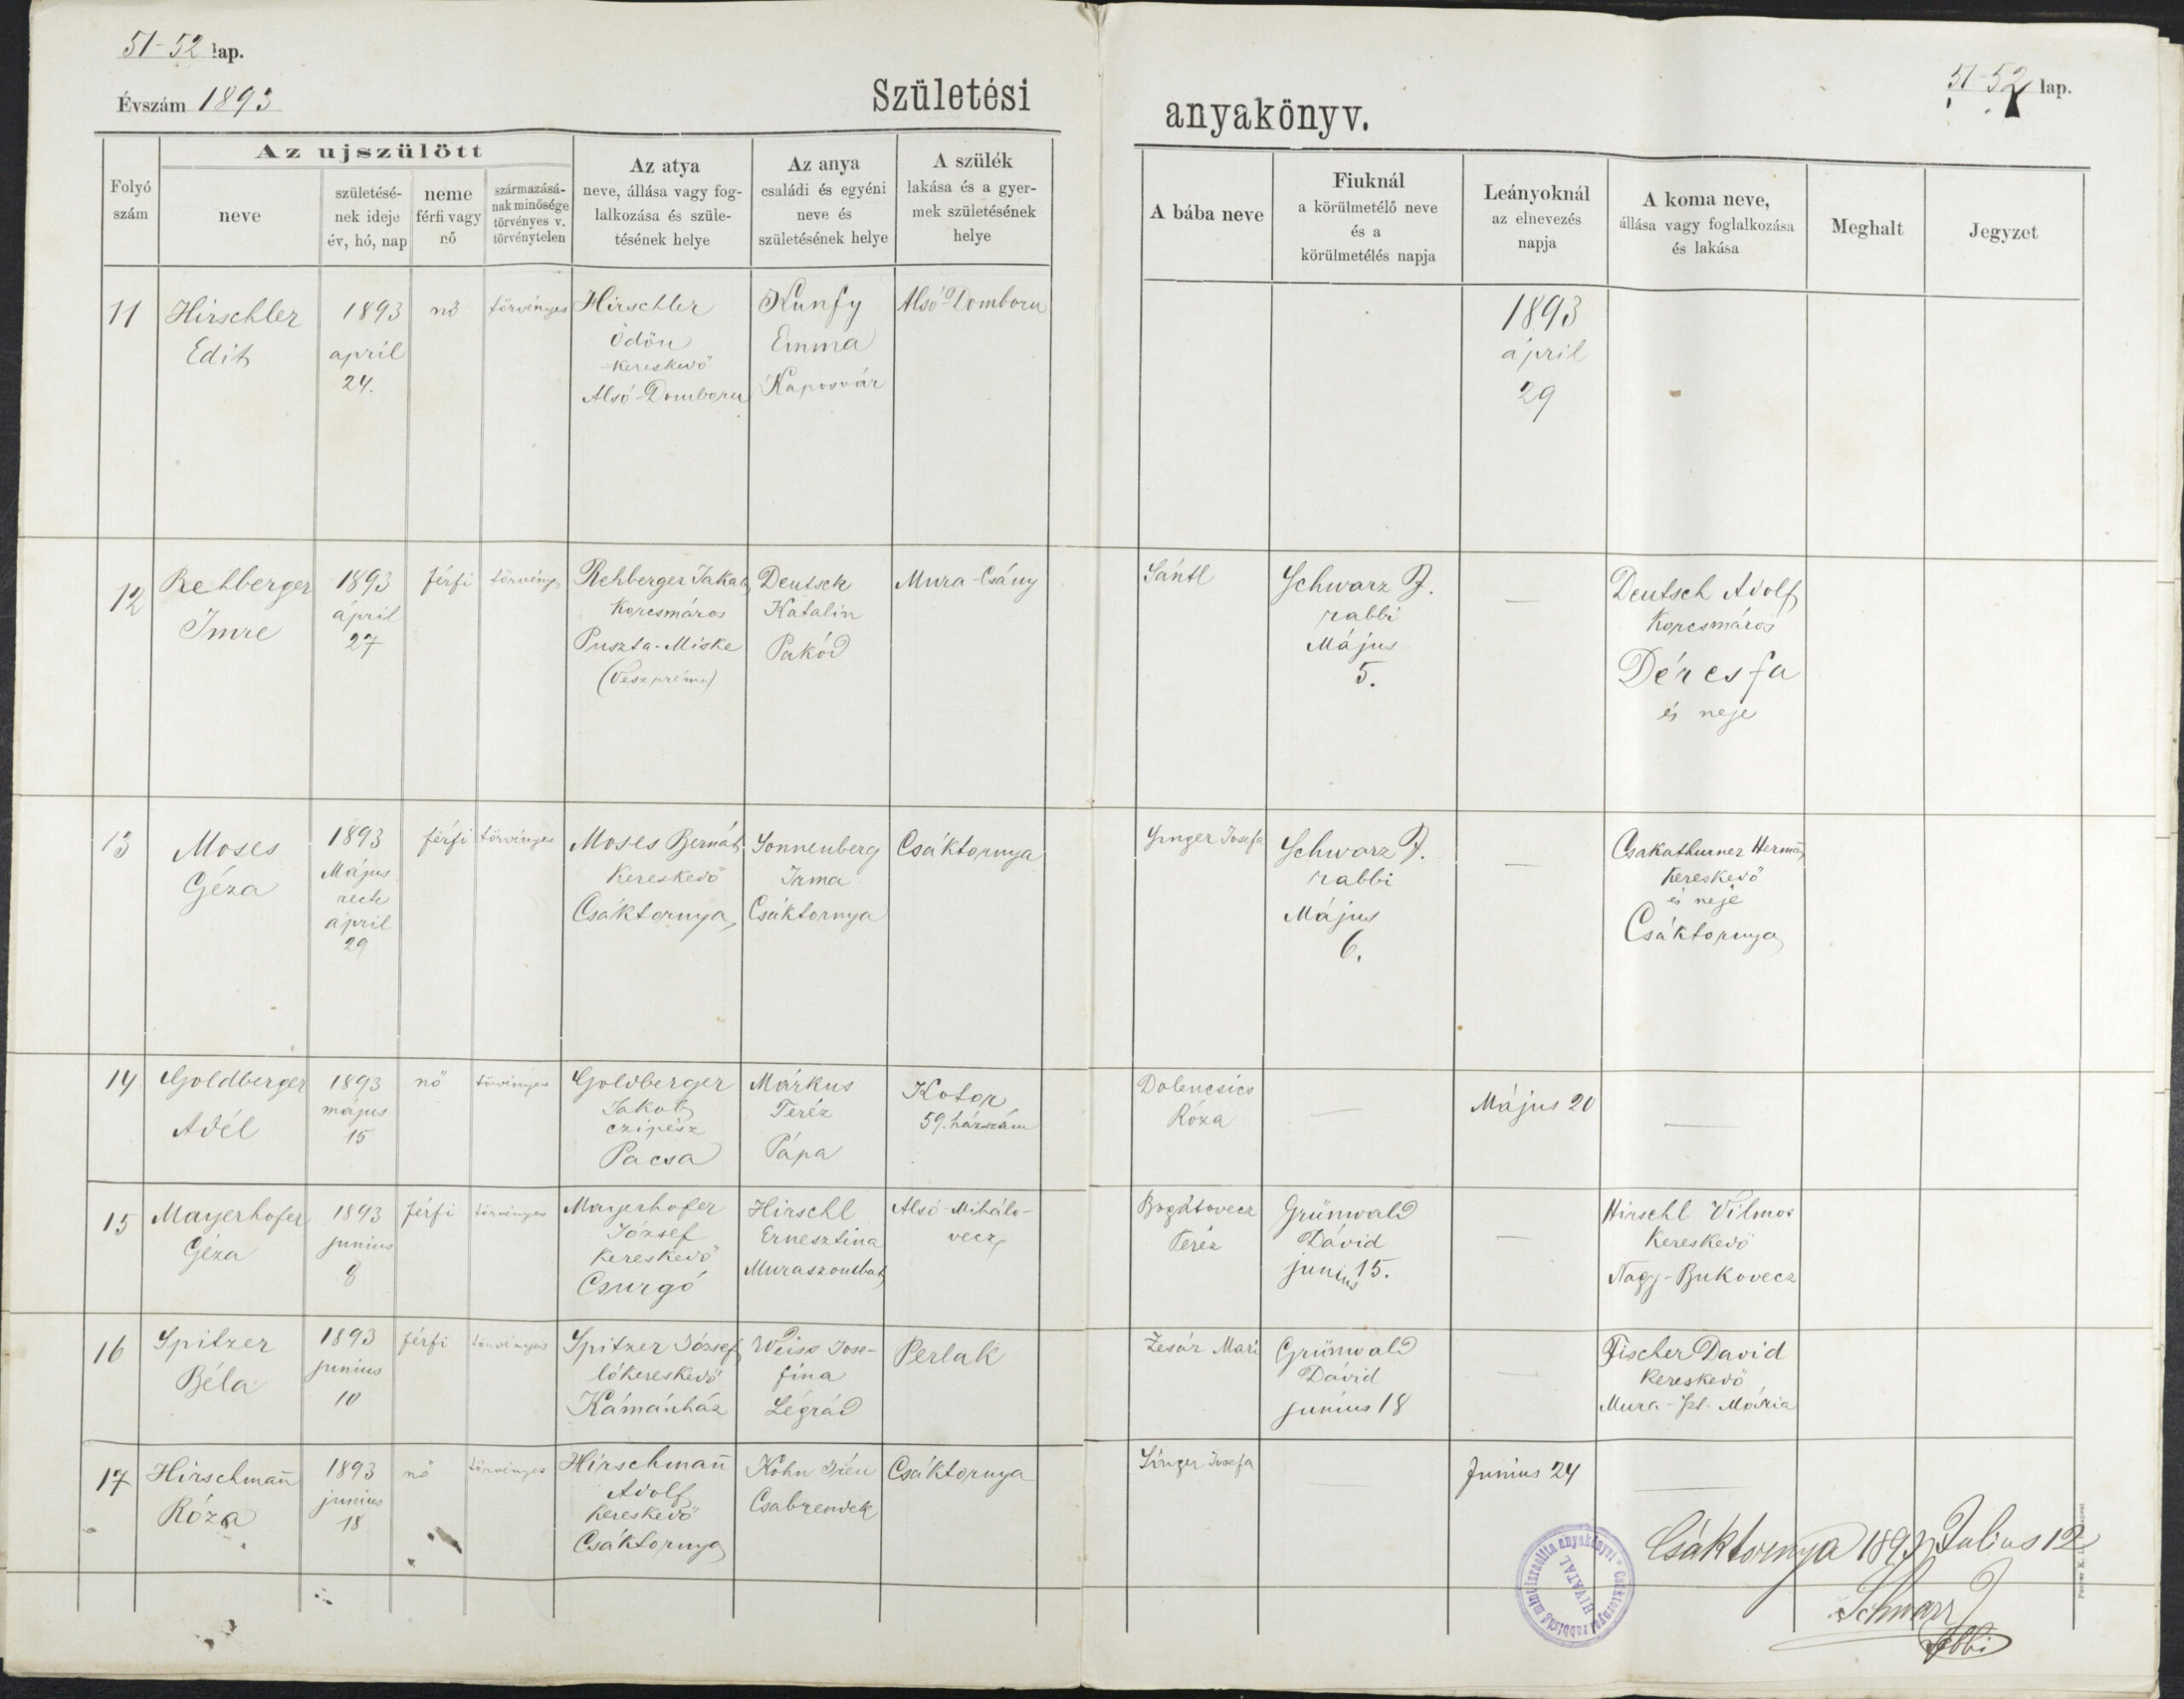 51-52 lap.
Évszám 1893
Születési
anyakönyv.
51-52 lap.
Folyó
szám
Az ujszülött
neve
születésé-
nek ideje
év, hó, nap
neme
férfi vagy
nő
származásá-
nak minősége
törvényes v.
törvénytelen
Az atya
neve, állása vagy fog-
lalkozása és szüle-
tésének helye
Az anya
családi és egyéni
neve és
születésének helye
A szülék
lakása és a gyer-
mek születésének
helye
A bába neve
Fiuknál
a körülmetélő neve
és a
körülmetélés napja
Leányoknál
az elnevezés
napja
A koma neve,
állása vagy foglalkozása
és lakása
Meghalt
Jegyzet
11
Hirschler
Edit
1893
april
24.
nő
törvényes
Hirschler
Ödön
kereskedő
Alsó-Domboru
Kunfy
Emma
Kaposvár
Alsó-Domboru
1893
ápril
29
12
Rehberger
Imre
1893
ápril
27
férfi
törvénys
Rehberger Jakab
Korcsmáros
Puszta-Miske
(Veszprém)
Deutsch
Katalin
Pakód
Mura-Csány
Sántl
Schwarz J.
rabbi
Május
5.
—
Deutsch Adolf
Korcsmáros
Dércsfa
és neje
13
Moses
Géza
1893
Május
recte
ápril
29
férfi
törvényes
Moses Bernát
Kereskedő
Csáktornya
Sonnenberg
Irma
Csáktornya
Csáktornya
Singer Josefa
Schwarz J.
rabbi
Május
6.
—
Csakathurner Herman
Kereskedő
és neje
Csáktornya
14
Goldberger
Adél
1893
május
15
nő
törvényes
Goldberger
Jakab
czipész
Pacsa
Márkus
Teréz
Pápa
Kotor
59. házszám
Dolencsics
Róza
—
Május 20
—
15
Mayerhofer
Géza
1893
junius
8
férfi
törvényes
Mayerhofer
József
Kereskedő
Csurgó
Hirschl
Ernesztina
Muraszombat
Alsó-Mihálo-
vecz
Bogdtovecz
Teréz
Grünwald
Dávid
junius 15.
—
Hirschl Vilmos
Kereskedő
Nagy-Bukovecz
16
Spitzer
Béla
1893
junius
10
férfi
törvényes
Spitzer József
lókereskedő
Kámánház
Weiss Jose-
fina
Légrád
Perlak
Zesár Mari
Grünwald
Dávid
junius 18
—
Fischer David
Kereskedő
Mura-Szt. Mária
17
Hirschman̄
Róza
1893
junius
18
nő
törvényes
Hirschman̄
Adolf
Kereskedő
Csáktornya
Kohn Irén
Csabrendek
Csáktornya
Singer Josefa
—
Junius 24
—
Csáktornya 1893 Julius 12
Schwarz J
rabbi
HIVATAL